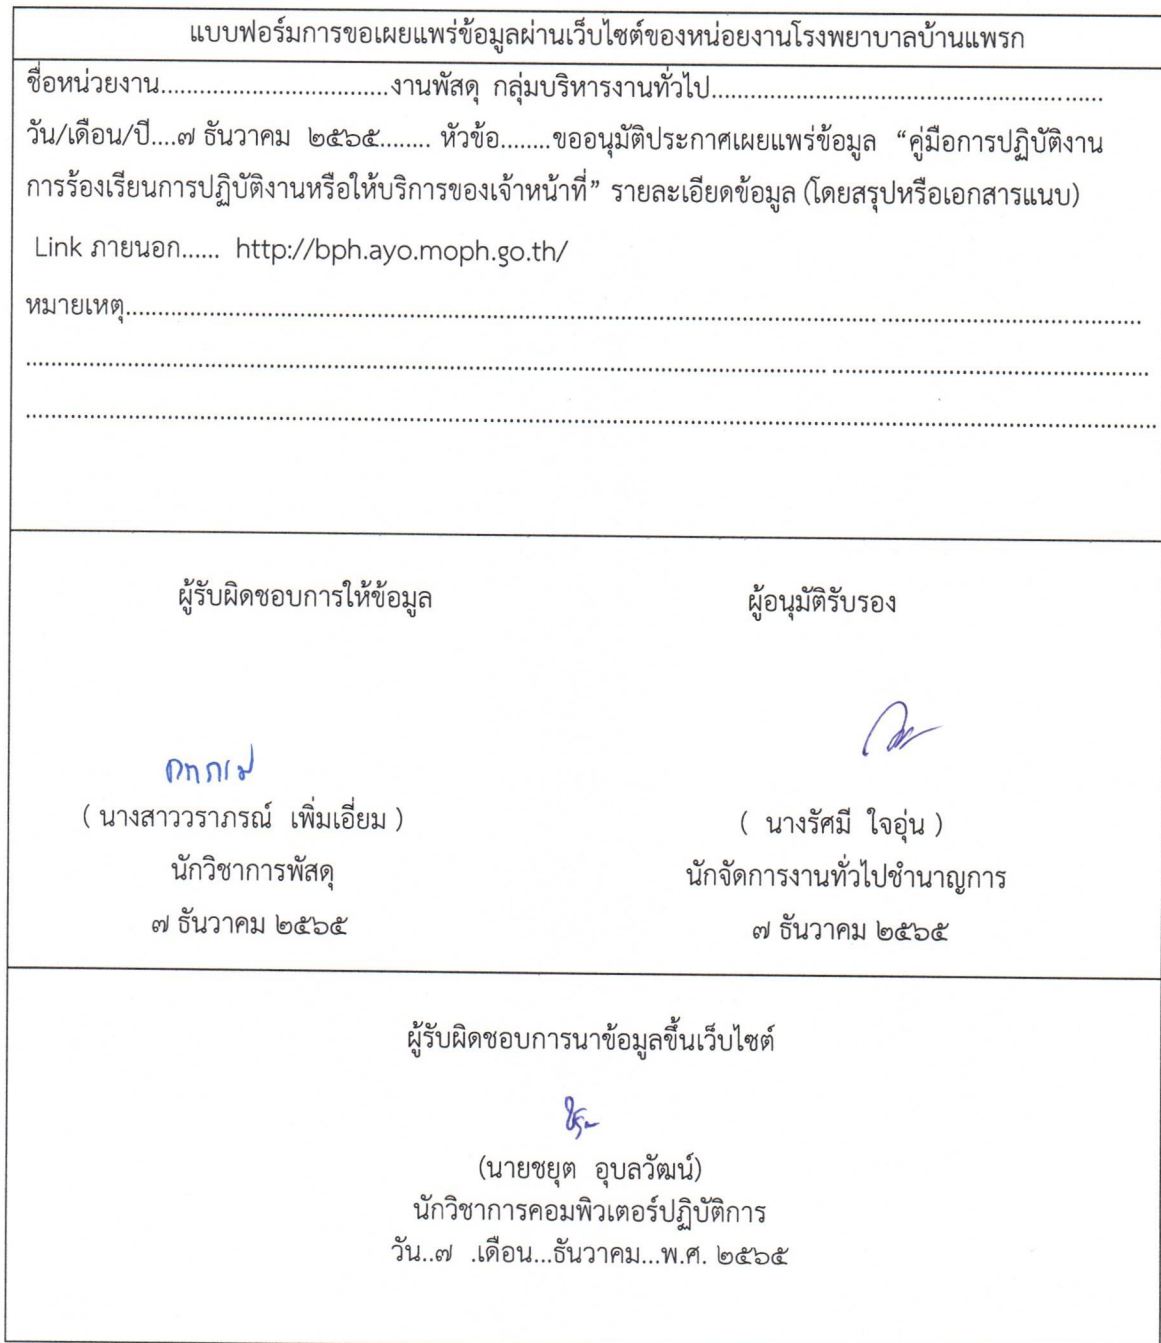 แบบฟอร์มการขอเผยแพร่ข้อมูลผ่านเว็บไซต์ของหน่อยงานโรงพยาบาลบ้านแพรก
ชื่อหน่วยงาน...................................งานพัสดุ กลุ่มบริหารงานทั่วไป............................................................
วัน/เดือน/ปี....๗ ธันวาคม ๒๕๖๕........ หัวข้อ........ขออนุมัติประกาศเผยแพร่ข้อมูล “คู่มือการปฏิบัติงาน
การร้องเรียนการปฏิบัติงานหรือให้บริการของเจ้าหน้าที่” รายละเอียดข้อมูล (โดยสรุปหรือเอกสารแนบ)
Link ภายนอก...... http://bph.ayo.moph.go.th/
หมายเหตุ............................................................................................................................................................
ผู้รับผิดชอบการให้ข้อมูล ผู้อนุมัติรับรอง
( นางสาววราภรณ์ เพิ่มเอี่ยม ) ( นางรัศมี ใจอุ่น )
นักวิชาการพัสดุ นักจัดการงานทั่วไปชำนาญการ
๗ ธันวาคม ๒๕๖๕ ๗ ธันวาคม ๒๕๖๕
ผู้รับผิดชอบการนาข้อมูลขึ้นเว็บไซต์
(นายชยุต อุบลวัฒน์)
นักวิชาการคอมพิวเตอร์ปฏิบัติการ
วัน..๗ .เดือน...ธันวาคม...พ.ศ. ๒๕๖๕